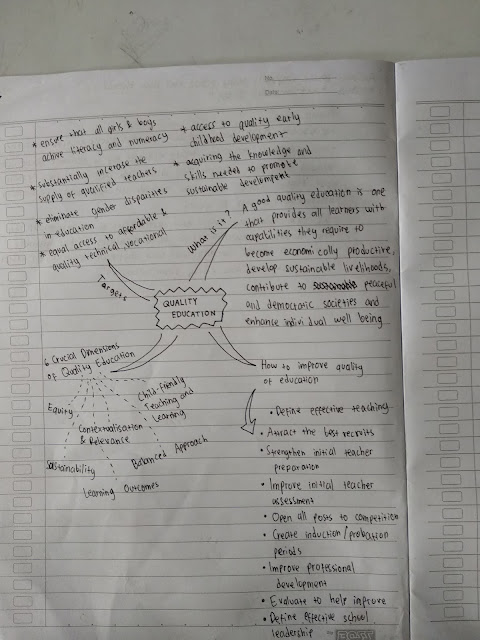 No.
Date:
* ensure that all girls & boys
achive literacy and numeracy
* substantially increase the
supply of qualified teachers
* eliminate gender disparities
in education
* equal access to affordable &
quality technical vocational
* access to quality early
childhood development
* acquiring the knowledge and
skills needed to promote
sustainable development
Targets
What is it?
A good quality education is one
that provides all learners with
capabilities they require to
become economically productive,
develop sustainable livelihoods,
contribute to peaceful
and democratic societies and
enhance individual well being
QUALITY
EDUCATION
6 Crucial Dimensions
of Quality Education
Equity
Contextualisation
& Relevance
Child-friendly
Teaching and
Learning
Sustainability
Balanced Approach
Learning Outcomes
How to improve quality
of education
• Define effective teaching
• Attract the best recruits
• Strengthen initial teacher
preparation
• Improve initial teacher
assessment
• Open all posts to competition
• Create induction/probation
periods
• Improve professional
development
• Evaluate to help improve
• Define effective school
leadership